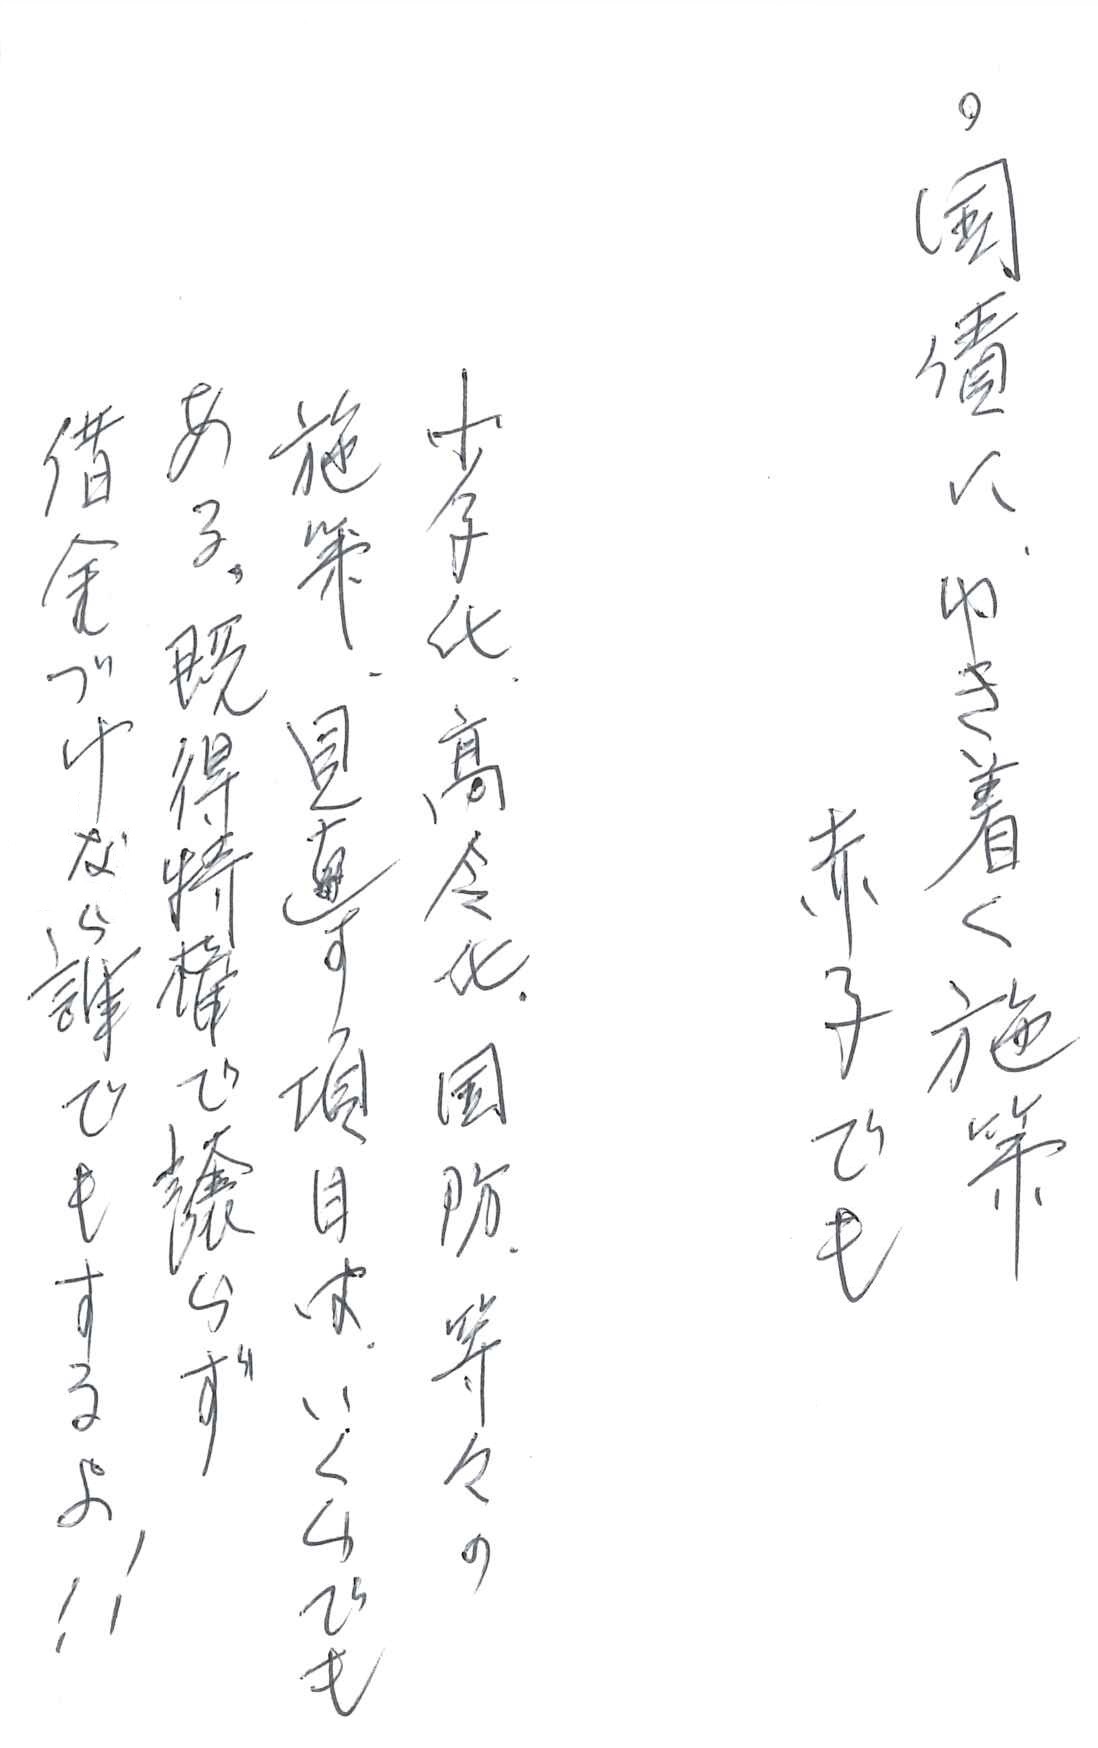 。国債に、ゆき着く施策
赤子でも
少子化、高令化、国防、等々の
施策、見直す項目は、いくらでも
ある。既得特権で譲らず
借金づけなら誰でもするよ!!